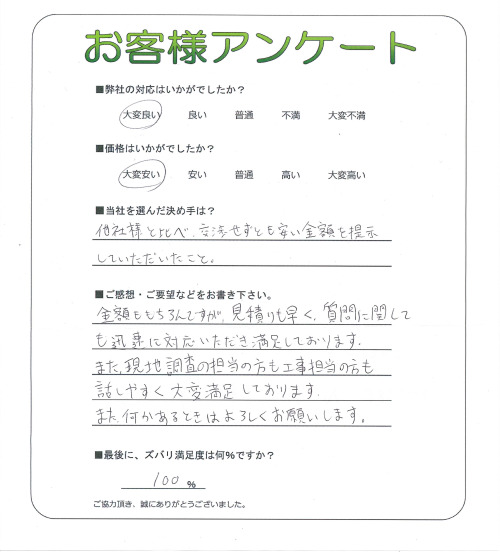 お客様アンケート
■弊社の対応はいかがでしたか？
大変良い 良い 普通 不満 大変不満
■価格はいかがでしたか？
大変安い 安い 普通 高い 大変高い
■当社を選んだ決め手は？
他社様と比べ、交渉せずとも安い金額を提示
していただいたこと。
■ご感想・ご要望などをお書き下さい。
金額ももちろんですが、見積りも早く、質問に関して
も迅速に対応いただき満足しております.
また、現地調査の担当の方も工事担当の方も
話しやすく大変満足しております.
また何かあるときはよろしくお願いします。
■最後に、ズバリ満足度は何%ですか？
100 %
ご協力頂き、誠にありがとうございました。